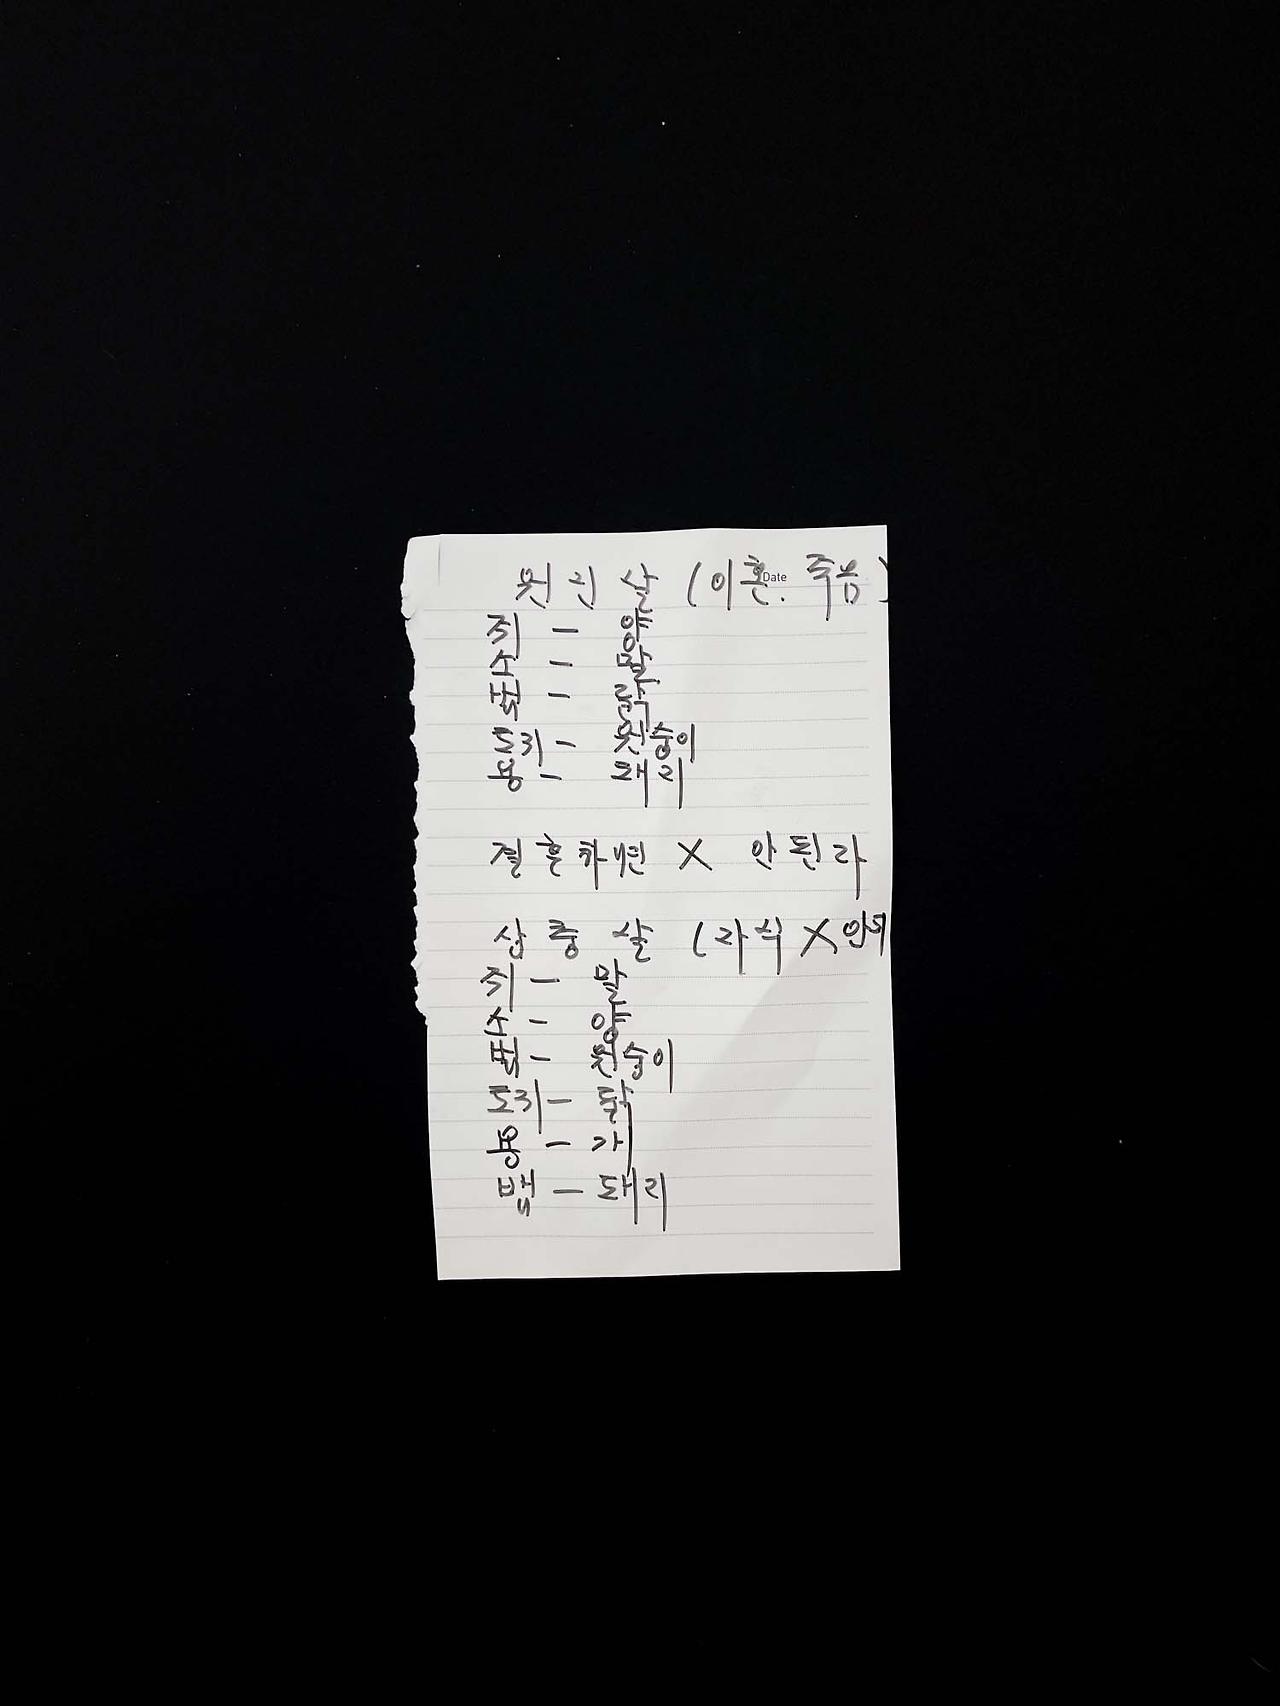 원진살 (이혼. 죽음)
Date
쥐 - 양
소 - 말
범 - 닭
토끼 - 원숭이
용 - 돼지
결혼하면 X 안된다
상충살 (자식 X 안되
쥐 - 말
소 - 양
범 - 원숭이
토끼 - 닭
용 - 개
뱀 - 돼지